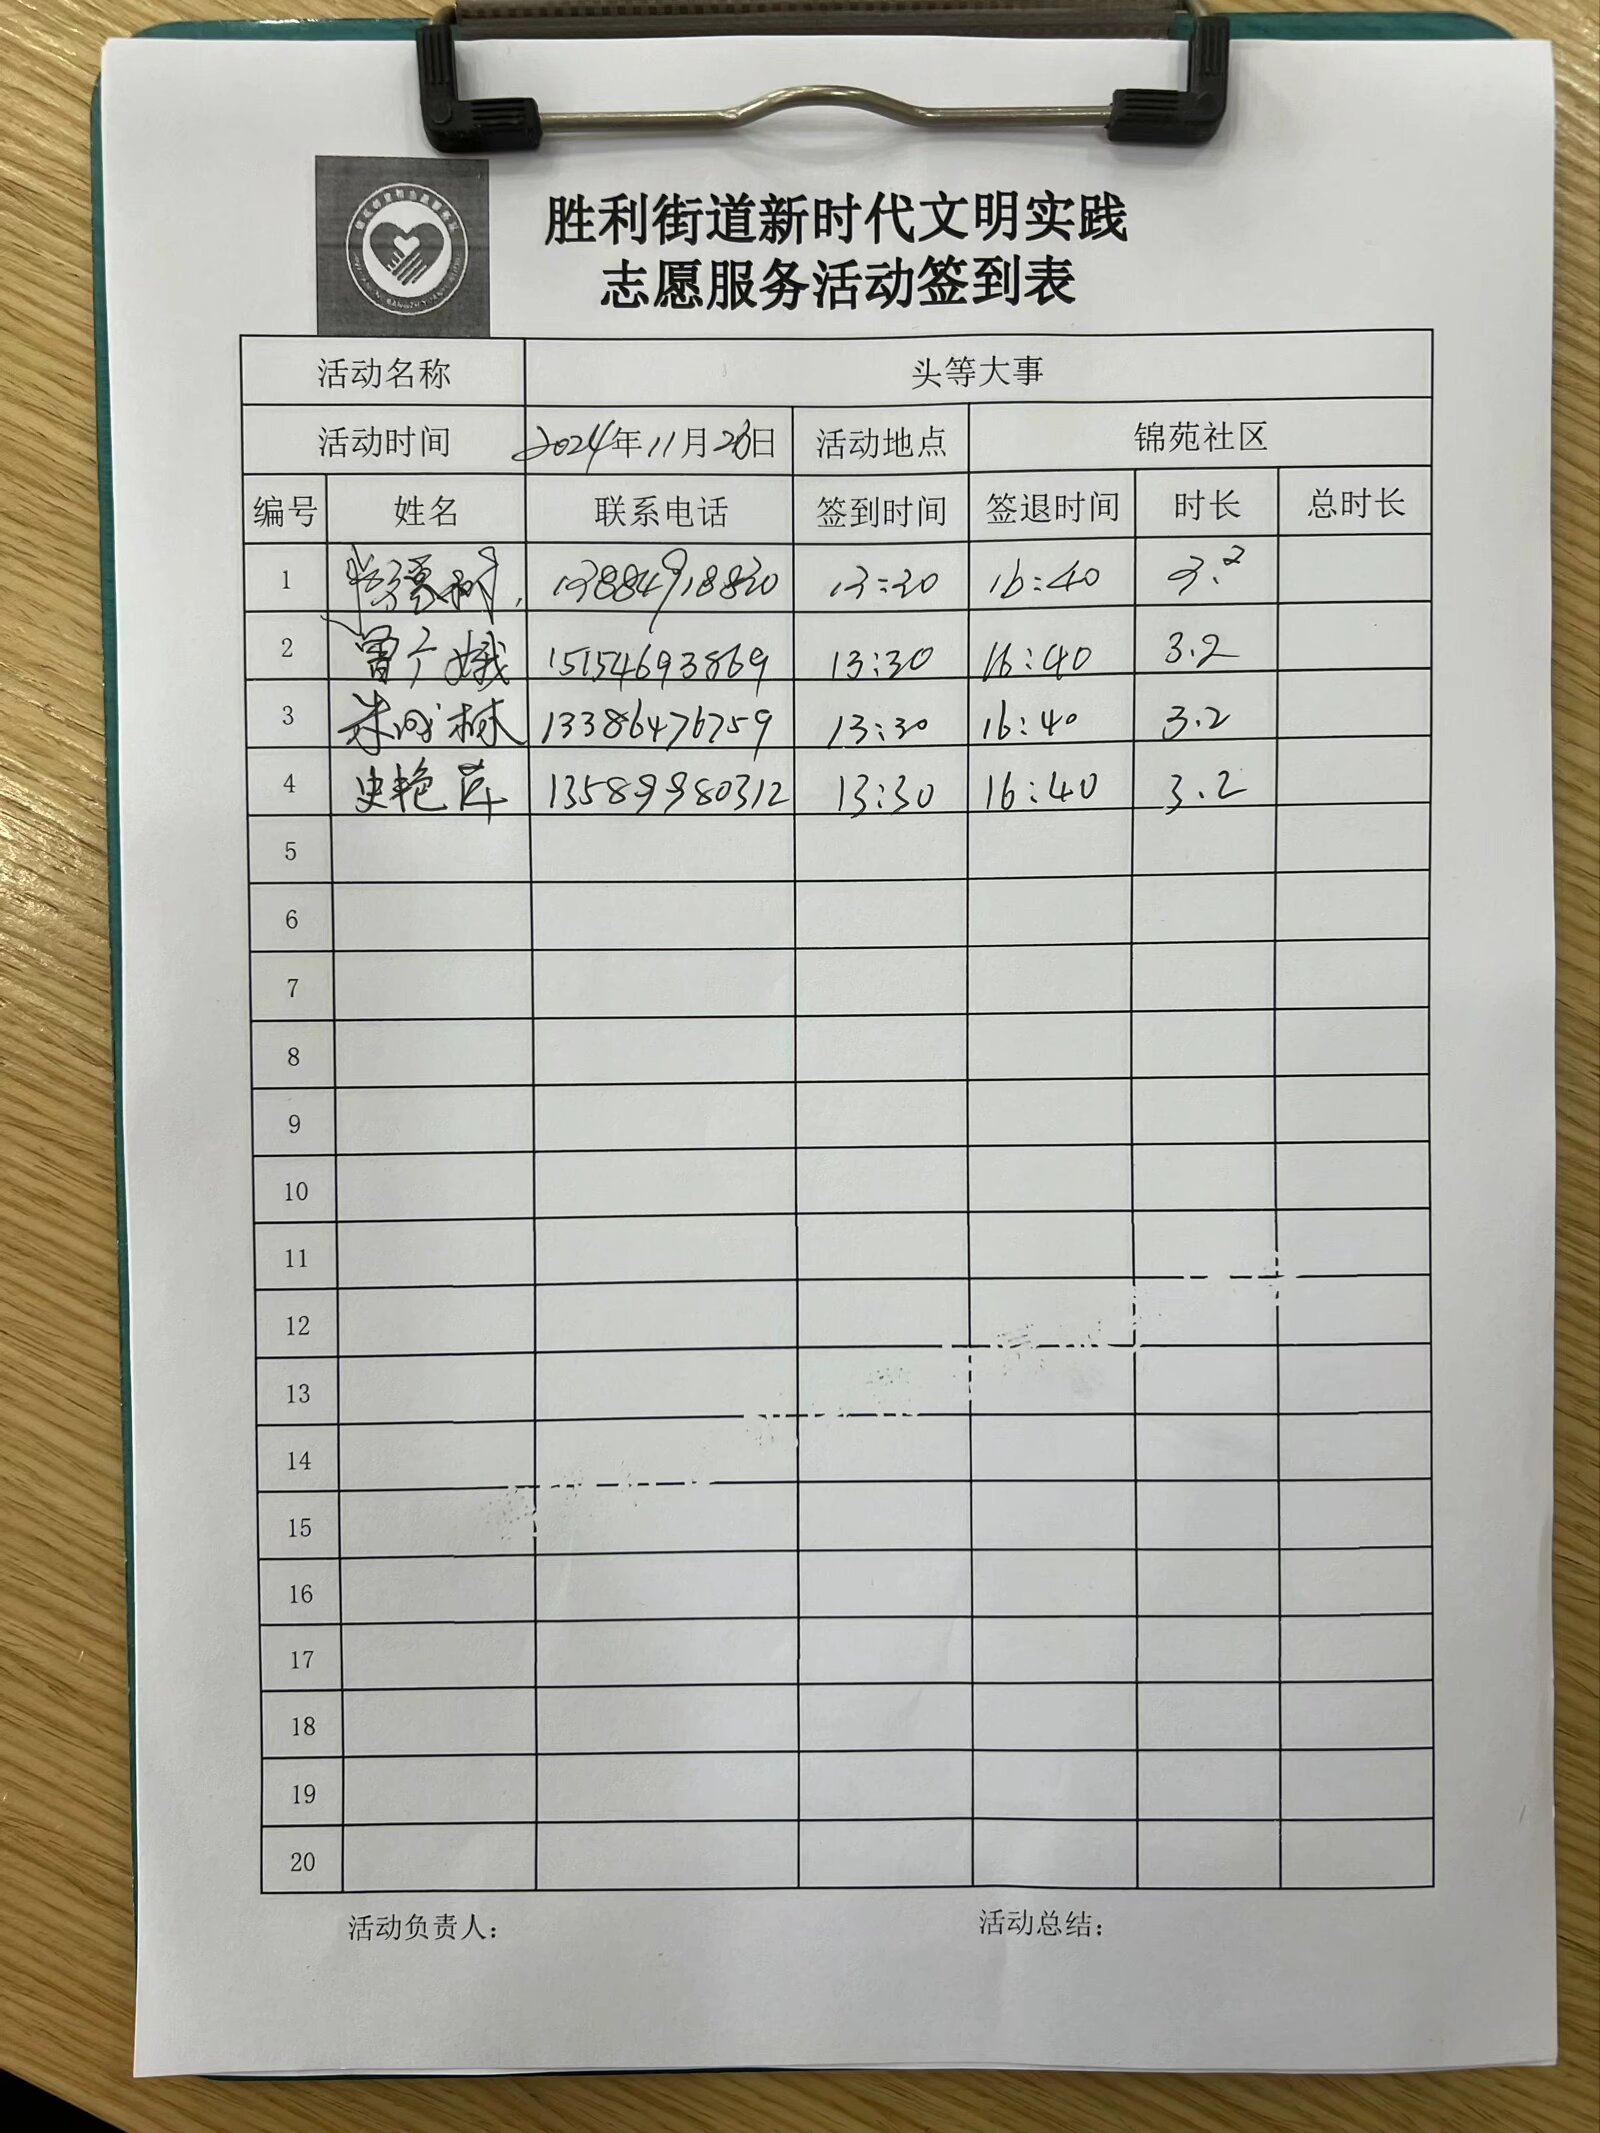 胜利街道新时代文明实践
志愿服务活动签到表
活动名称 头等大事
活动时间 2024年11月28日 活动地点 锦苑社区
编号 姓名 联系电话 签到时间 签退时间 时长 总时长
1 13884918830 13:30 16:40 3.2
2 曾广娥 15154693869 13:30 16:40 3.2
3 朱成林 13386476759 13:30 16:40 3.2
4 史艳萍 13589980312 13:30 16:40 3.2
5
6
7
8
9
10
11
12
13
14
15
16
17
18
19
20
活动负责人: 活动总结: